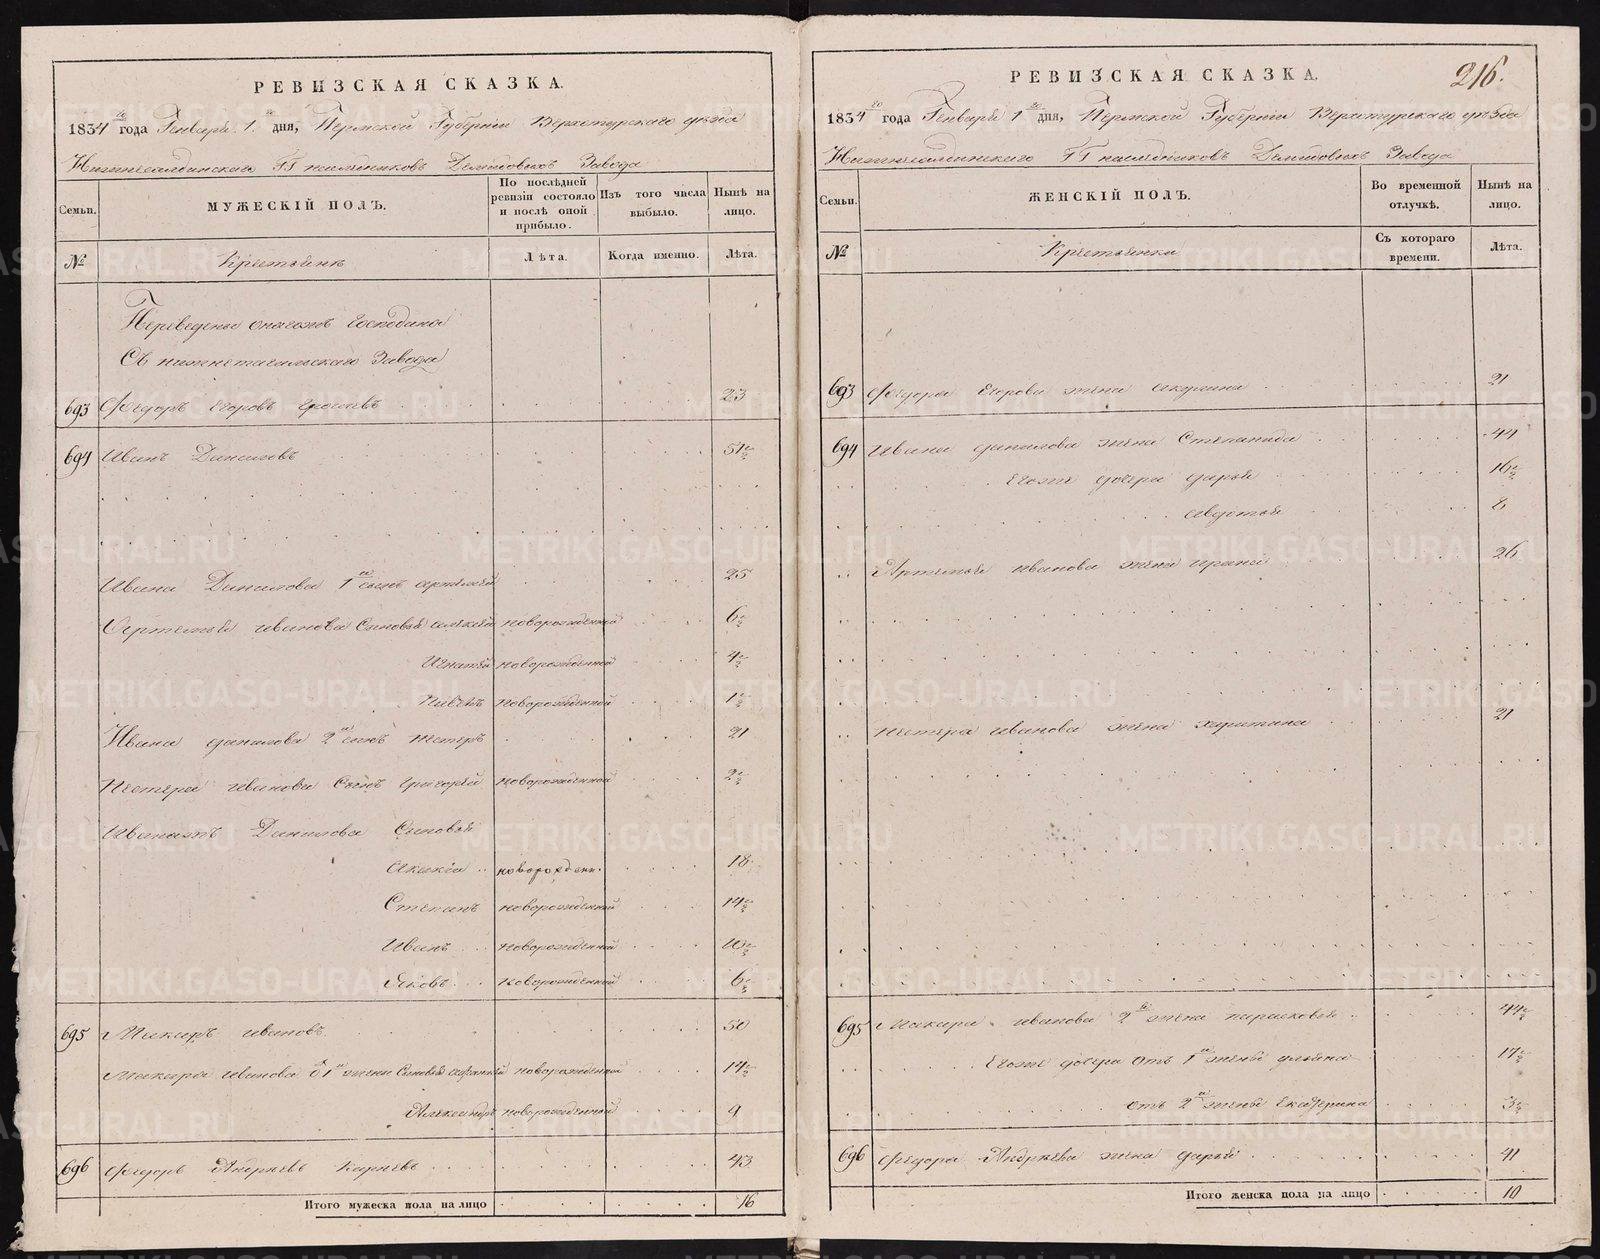 РЕВИЗСКАЯ СКАЗКА.
1834 го года Генваря 1 го дня, Пермской Губернiи Верхотурского уѣзда
Нижнесалдинского ГГ наслѣдниковъ Демидовыхъ Завода
Семьи.
МУЖЕСКIЙ ПОЛЪ.
По послѣдней ревизiи состояло и послѣ оной прибыло.
Изъ того числа выбыло.
Нынѣ на лицо.
№
Крестьянъ
Лѣта.
Когда именно.
Лѣта.
Переведены
Съ нижнетагильскаго Завода
693 Федоръ Егоровъ 23
694 Иванъ Даниловъ 51½
Ивана Данилова 1й сынъ Артемей 25
Артемья Иванова Сыновья Алексей новорожденной 6½
Игнатей новорожденной 4½
Павелъ новорожденной 1½
Ивана Данилова 2й сынъ Нестеръ 21
Нестера Иванова Сынъ Григорей новорожденной 2½
Данилова Сыновья
Акакiй новорожденн. 18
Степанъ новорожденной 14½
Иванъ новорожденной 10½
Яковъ новорожденной 6½
695 Макаръ Ивановъ 50
Макара Иванова о 1й жены Сыновья новорожденной 14½
Александръ новорожденной 9
696 Федоръ Андреевъ 43
Итого мужеска пола на лицо 16
216.
РЕВИЗСКАЯ СКАЗКА.
1834 го года Генваря 1 го дня, Пермской Губернiи Верхотурского уѣзда
Нижнесалдинского ГГ наслѣдниковъ Демидовыхъ Завода
Семьи.
ЖЕНСКIЙ ПОЛЪ.
Во временной отлучкѣ.
Нынѣ на лицо.
№
Крестьянка
Съ котораго времени.
Лѣта.
693 Федора Егорова жена Акулина 21
694 Ивана Данилова жена Степанида 44
Егоже дочери Дарья 16½
Авдотья 8
Артемья Иванова жена Ирина 26
Нестера Иванова жена Харитина 21
695 Макара Иванова 2я жена Парасковья 44½
Егоже дочери отъ 1й жены Ульяна 17½
отъ 2й жены Екатерина 3½
696 Федора Андреева жена Дарья 41
Итого женска пола на лицо 10
METRIKI.GASO-URAL.RU